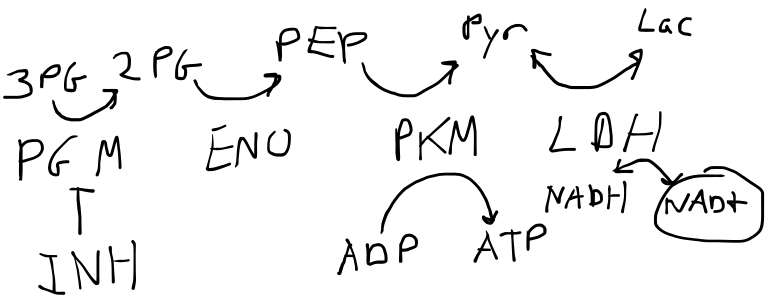 3PG 2PG PEP Pyr Lac
PGM ENO PKM LDH
NADH NAD+
INH ADP ATP